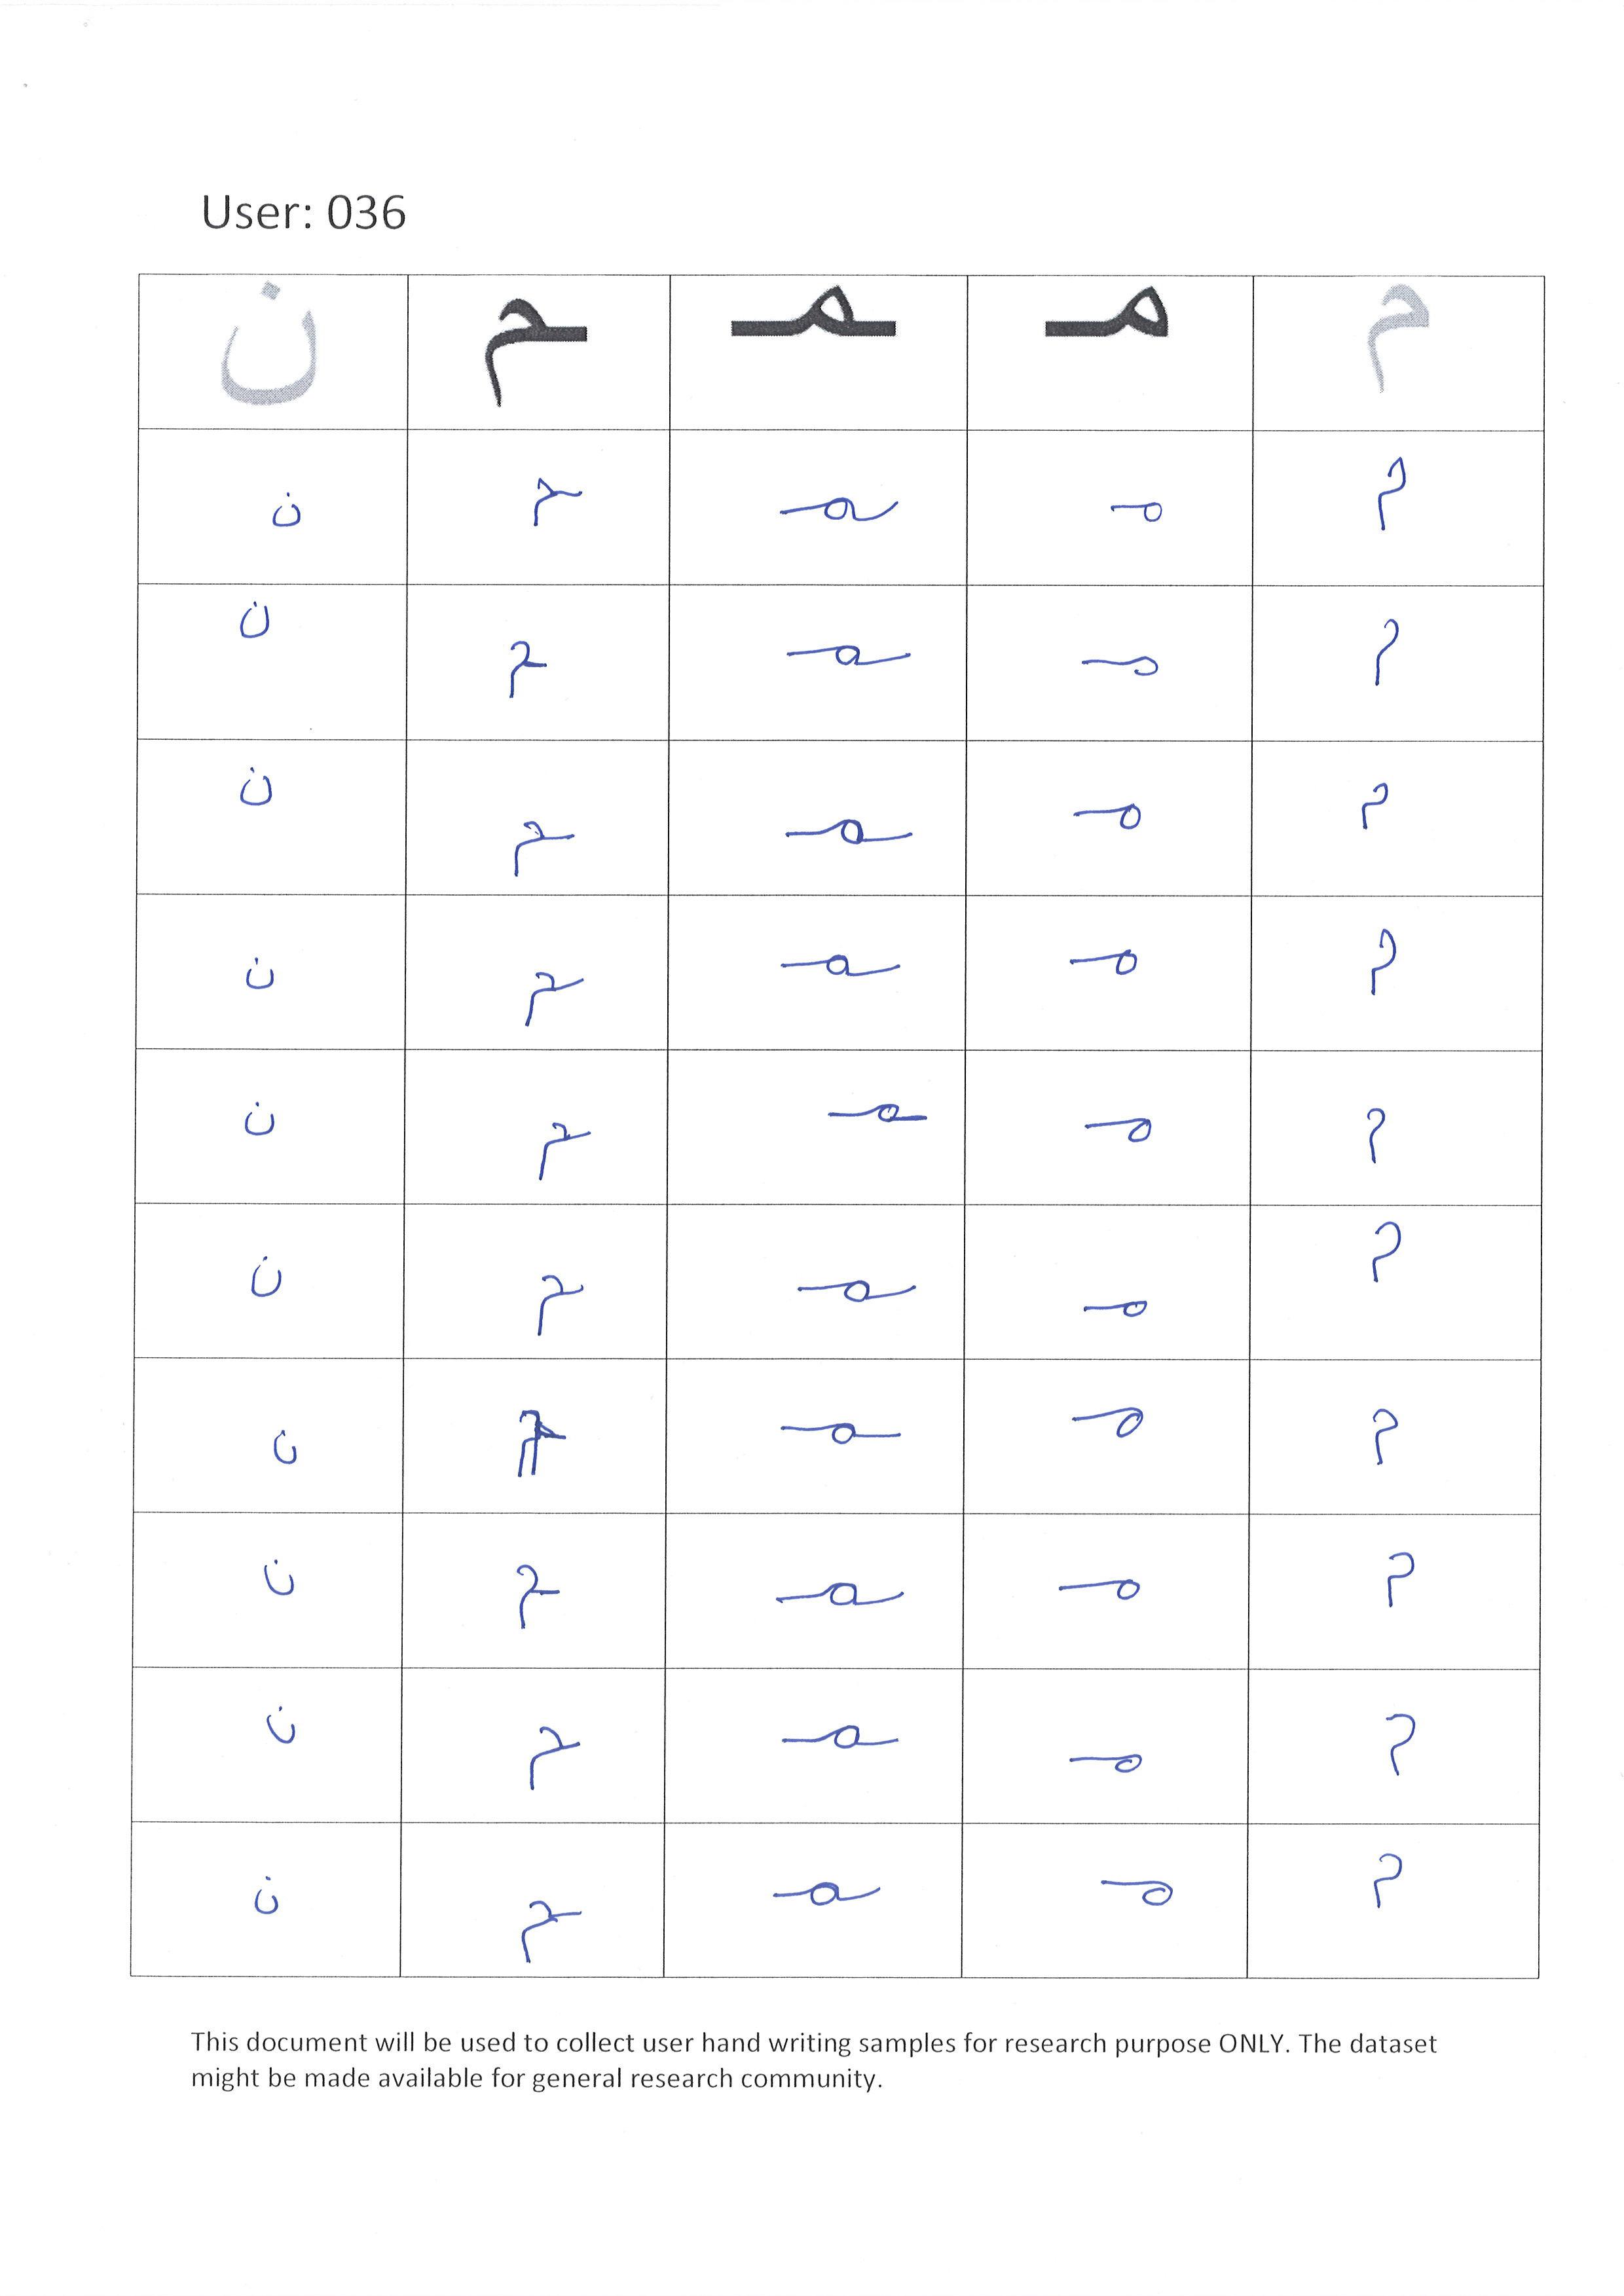 User: 036
م مـ ـمـ ـم ن
م مـ ـمـ ـم ن
م مـ ـمـ ـم ن
م مـ ـمـ ـم ن
م مـ ـمـ ـم ن
م مـ ـمـ ـم ن
م مـ ـمـ ـم ن
م مـ ـمـ ـم ن
م مـ ـمـ ـم ن
م مـ ـمـ ـم ن
م مـ ـمـ ـم ن
This document will be used to collect user hand writing samples for research purpose ONLY. The dataset
might be made available for general research community.